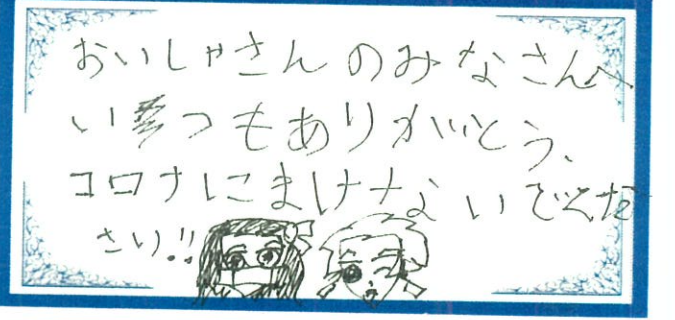 おいしゃさんのみなさんへ
いつもありがとう、
コロナにまけないでくだ
さい!!